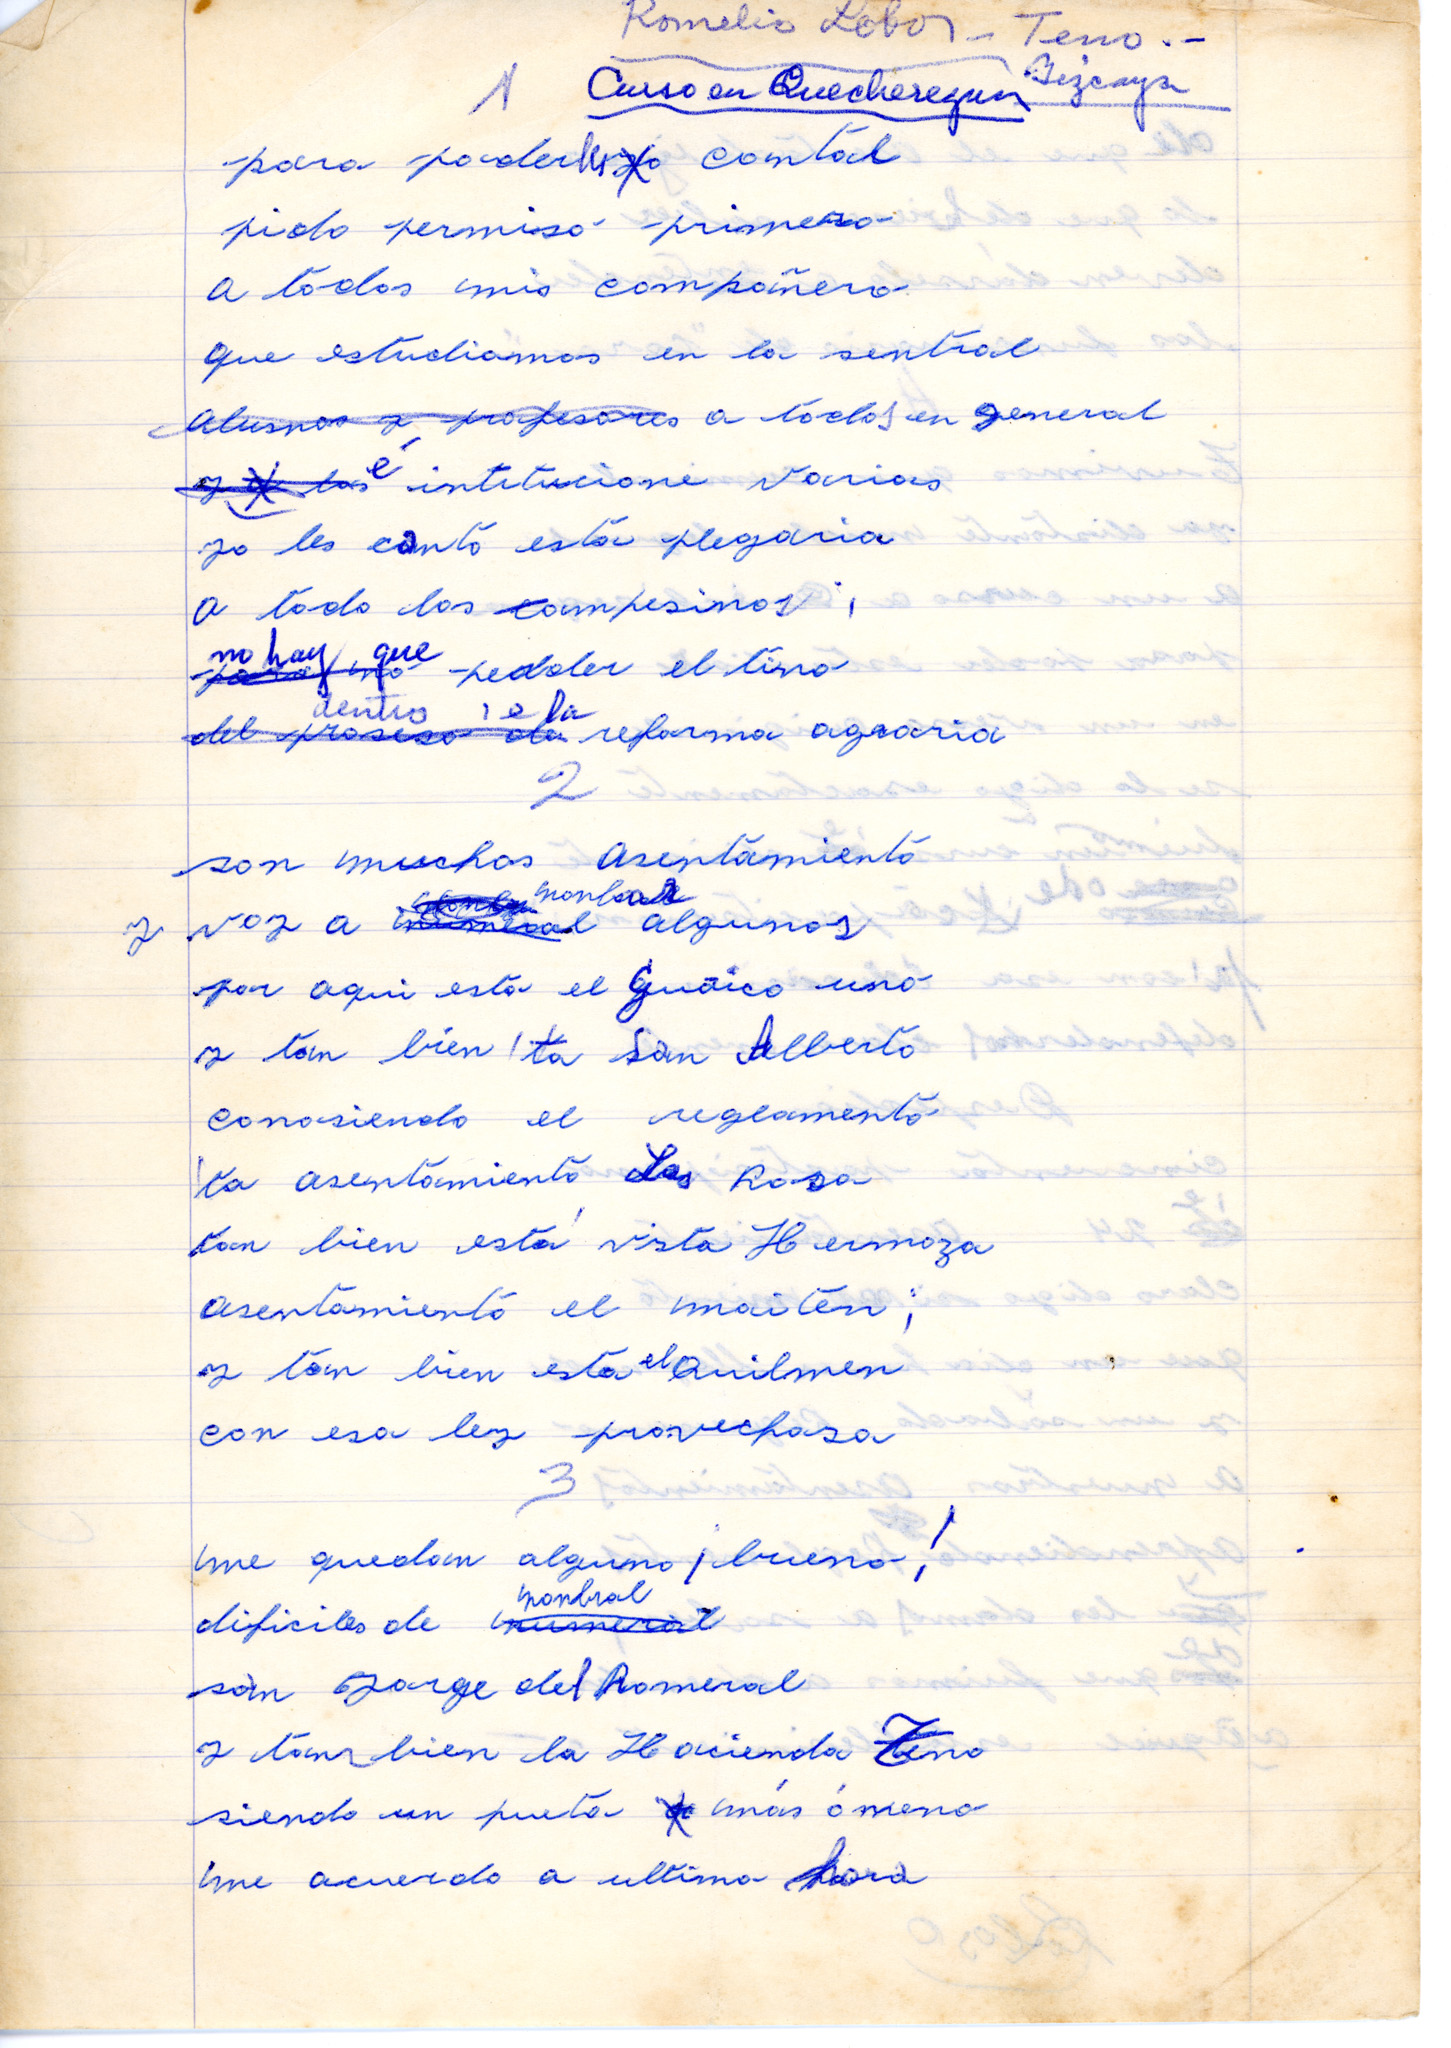 Romelio Lobos - Teno.-
Curso en Quecheregun Bizcaya
1
para poderles cantal
pido permiso primero
a todos mis compañero
que estudiamos en la sentral
alusnos y profesores a todos en general
y a los é intitucione varias
yo les canto esta plegaria
a todo los campesinos;
no hay que
para no pedder el tino
dentro de la
del proseso dela reforma agraria
2
son muchos asentamiento
nombral
y voy a numeral algunos
por aqui esta el Guaico uno
y tan bien 'ta San Alberto
conosiendo el reglamento
'ta asentamiento Las Rosa
tan bien está vista Hermoza
asentamiento el maiten;
y tan bien esta el Quilmen
con esa ley provechosa
3
me quedan alguno ¡bueno!
nombral
dificiles de numeral
san Jorge del Romeral
y tan bien la Hacienda Teno
siendo un pueta más ó meno
me acuerdo a ultima hora